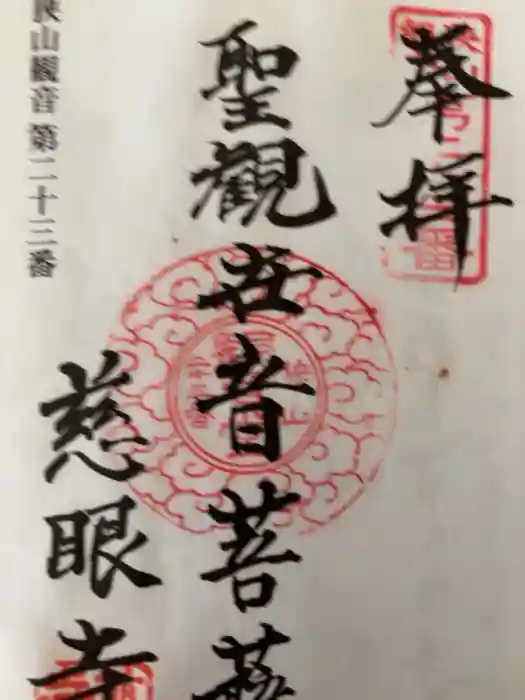 奉拝
聖觀世音菩薩
慈眼寺
狭山觀音第二十三番